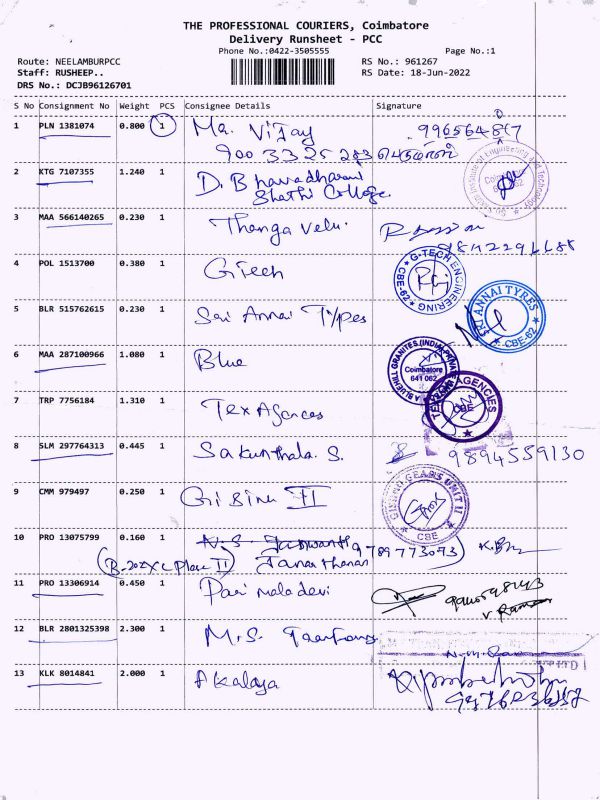 THE PROFESSIONAL COURIERS, Coimbatore
Delivery Runsheet - PCC
Phone No.:0422-3505555
Page No.:1
Route: NEELAMBURPCC
RS No.: 961267
Staff: RUSHEEP..
RS Date: 18-Jun-2022
DRS No.: DCJB96126701
S No Consignment No Weight PCS Consignee Details Signature
1 PLN 1381074 0.800 1 Ma. Vijay
900 33 25 283 பெருமாள்
2 KTG 7107355 1.240 1 D. Bhavadharani
Shathi College
3 MAA 566140265 0.230 1 Thangavelu
4 POL 1513700 0.380 1 GTech
G-TECH ENGINEERING
CBE-62
5 BLR 515762615 0.230 1 Sri Annai Types
SRI ANNAI TYRES
CBE-62
6 MAA 287100966 1.080 1 Blue
Coimbatore
641 062
7 TRP 7756184 1.310 1 Tex Agences
TEX AGENCIES
CBE
8 SLM 297764313 0.445 1 Sakunthala. S. 9894559130
9 CMM 979497 0.250 1 Gri Binu II
GEARS UNIT II
CBE
10 PRO 13075799 0.160 1 N. S. 9789773073
Janarthanan
11 PRO 13306914 0.450 1 Parimaladevi
V. Raman
12 BLR 2801325398 2.300 1 M.S.
13 KLK 8014841 2.000 1 Akalaya